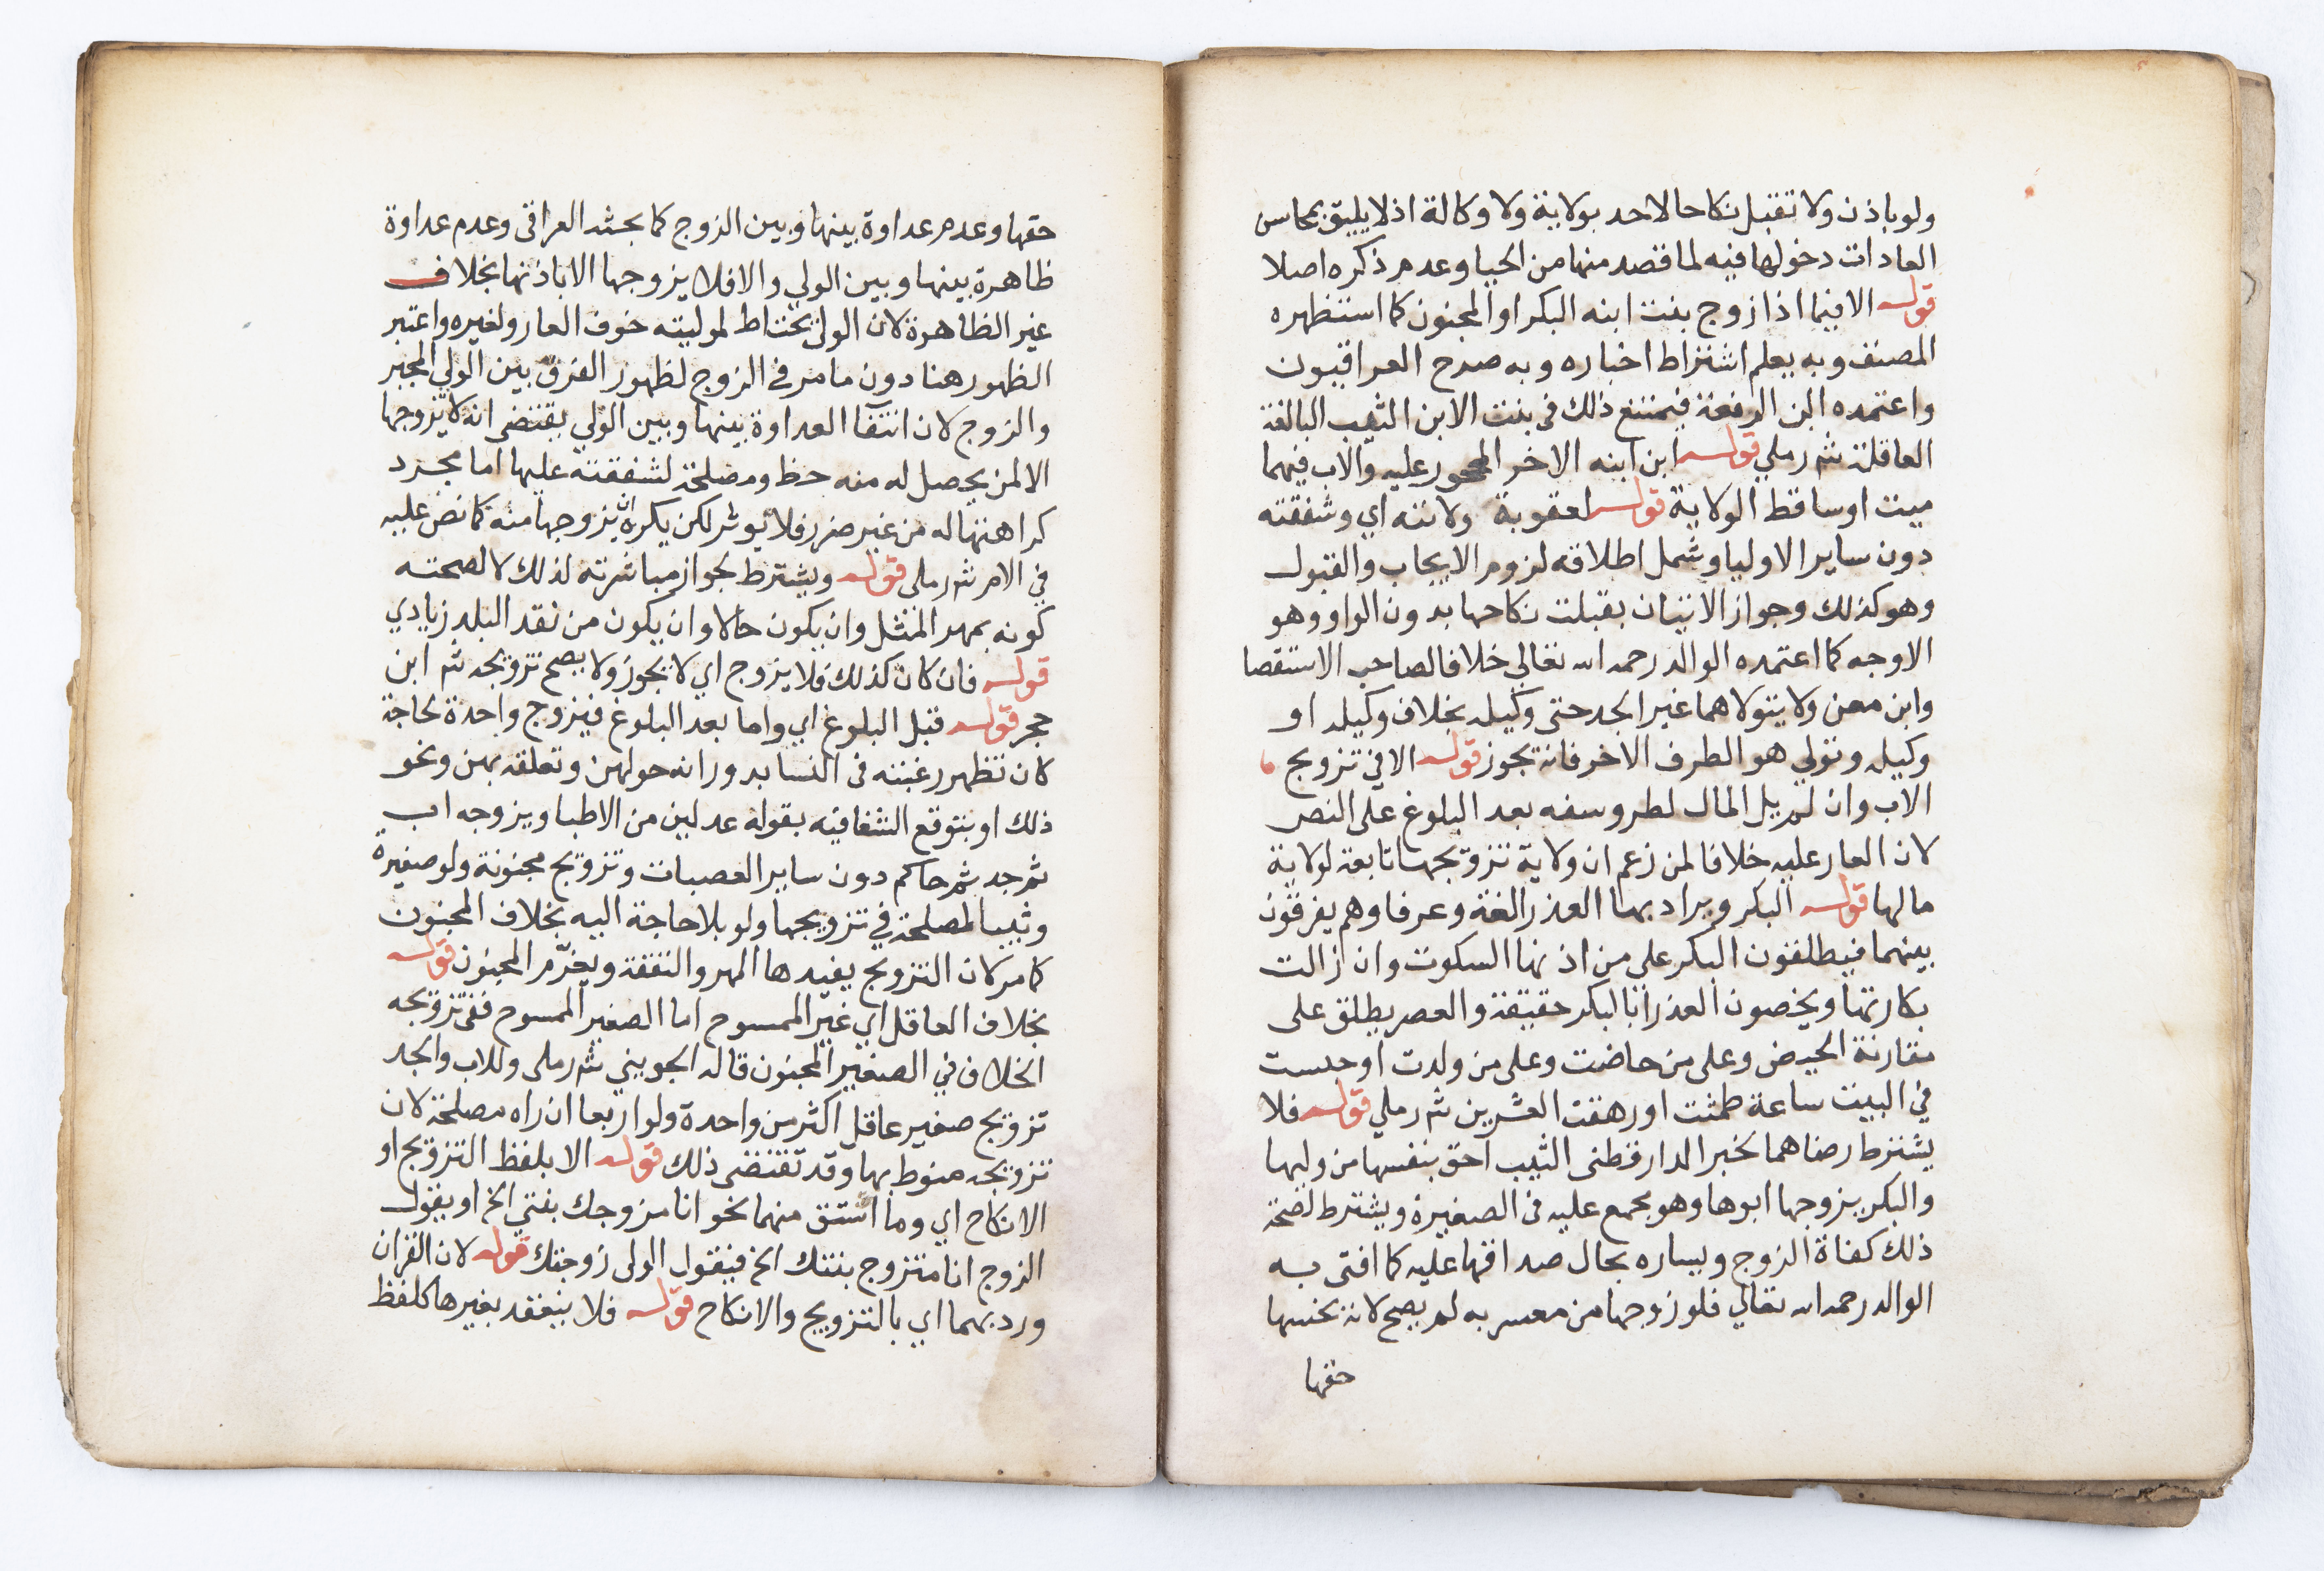 ولو باذن ولا تقبل نكاحا لاحد بولاية ولا وكالة اذ لا يليق بمحاسن
العادات دخولها فيه لما قصد منها من الحيا وعدم ذكره اصلا
قوله الا فيما اذا زوج بنت ابنه البكر او المجنون كما استظهره
المصنف وبه يعلم اشتراط اجباره وبه صرح العراقيون
واعتمده ابن الرفعة فيمتنع ذلك في بنت الابن الثيب البالغة
العاقلة شم رملي قوله ابن ابنه الاخر المحجور عليه والاب فيهما
ميت او ساقط الولاية قوله لعقوبة ولايته اي وشفقته
دون ساير الاوليا وشمل اطلاقه لزوم الايجاب والقبول
وهو كذلك وجواز الاتيان بقبلت نكاحها بدون الواو وهو
الاوجه كما اعتمده الوالد رحمه الله تعالي خلافا لصاحب الاستقصا
وابن معن ولا يتولاهما غير الجد حتى وكيله بخلاف وكيله او
وكيله وتولي هو الطرف الاخر فانه يجوز قوله الا في تزويج
الاب وان لم يل المال لطرو سفه بعد البلوغ على النص
لان العار عليه خلافا لمن زعم ان ولاية تزويجها تابعة لولاية
مالها قوله البكر ويرادبها العذرا لغة وعرفا وهم يفرقون
بينهما فيطلقون البكر علي من اذنها السكوت وان زالت
بكارتها ويخصون العذرا بالبكر حقيقة والعصر يطلق على
مقارنة الحيض وعلى من حاضت وعلى من ولدت او حبست
في البيت ساعة طمثت او رهقت العشرين شم رملي قوله فلا
يشترط رضاهما لخبر الدارقطني الثيب احق بنفسها من وليها
والبكر يزوجها ابوها وهو مجمع عليه في الصغيرة ويشترط لصحة
ذلك كفاة الزوج ويساره بحال صداقها عليه كما افتى به
الوالد رحمه الله تعالي فلو زوجها من معسر به لم يصح لانه بخسها
حقها
حقها وعدم عداوة بينها وبين الزوج كما بحثه العراقي وعدم عداوة
ظاهرة بينها وبين الولي والا فلا يزوجها الا باذنها بخلاف
غير الظاهرة لان الولي يحتاط لموليته خوف العار ولغيره واعتبر
الظهور هنا دون ما مر في الزوج لظهور الفرق بين الولي المجبر
والزوج لان انتفا العداوة بينها وبين الولي يقتضي انه لا يزوجها
الا لمن يحصل له منه حظ ومصلحة لشفقته عليها اما مجرد
كراهتها له من غير ضرر فلا يوثر لكن يكره ان يزوجها منه كما نص عليه
في الام شم رملي قوله ويشترط لجواز مباشرته لذلك لا لصحته
كونه بمهر المثل وان يكون حالا وان يكون من نقد البلد زيادي
قوله فان كان كذلك فلا يزوج اي لا يجوز ولا يصح تزويجه شم ابن
حجر قوله قبل البلوغ اي واما بعد البلوغ فيزوج واحدة لحاجة
كان تظهر رغبته في النسا بدورانه حولهن وتعلقه بهن ونحو
ذلك او بتوقع الشفا فيه بقولة عدلين من الاطبا ويزوجه اب
ثم جد ثم حاكم دون ساير العصبات وتزويج مجنونة ولو صغيرة
وثيبا لمصلحة في تزويجها ولو بلا حاجة اليه بخلاف المجنون
كما مر كان التزويج يفيدها المهر والنفقة ويغرم المجنون قوله
بخلاف العاقل اي غير الممسوح اما الصغير الممسوح ففي تزويجه
الخلاف في الصغير المجنون قاله الجويني شم رملى وللاب والجد
تزويج صغير عاقل اكثر من واحدة ولو اربعا ان راه مصلحة لان
تزويجه منوط بها وقد تقتضي ذلك قوله الا بلفظ التزويج او
الانكاح اي وما اشتق منهما نحو انا مزوجك بنتي الخ او يقول
الزوج انا متزوج بنتك الخ فيقول الولى زوجتك قوله لان القران
ورد بهما اي بالتزويج والانكاح قوله فلا ينعقد بغيرها كلفظ